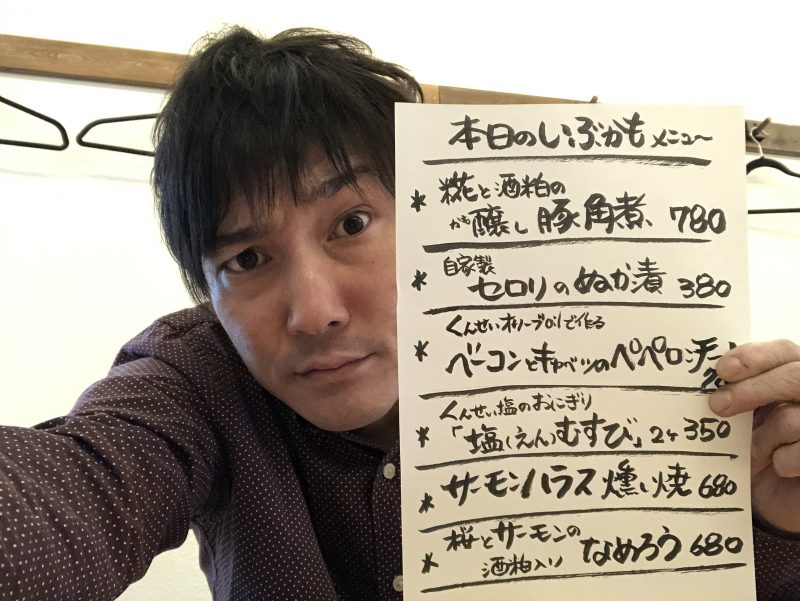 本日のいぶかも メニュー
* 糀と酒粕の
かも醸し 豚角煮、 780
* 自家製
セロリのぬか漬 380
くんせいオリーブOilで作る
* ベーコンとキャベツのペペロンチーノ
くんせい塩のおにぎり
* 「塩(えん)むすび」2ケ 350
* サーモンハラス 燻し焼 680
* 桜とサーモンの
酒粕入り なめろう 680